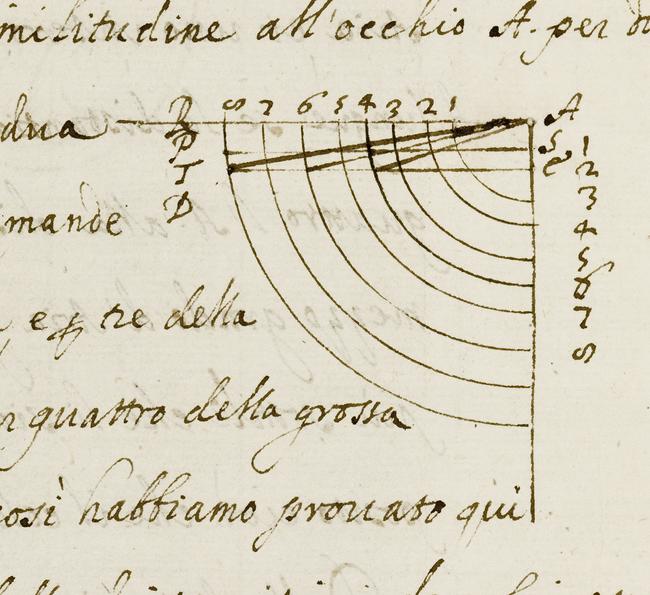 militudine all'occhio A. per
8 7 6 5 4 3 2 1 A
dua
B
P
T
D
S 1
e 2
3
4
5
6
7
8
mande
e p tre della
quattro della grossa
osì habbiamo prouato qui